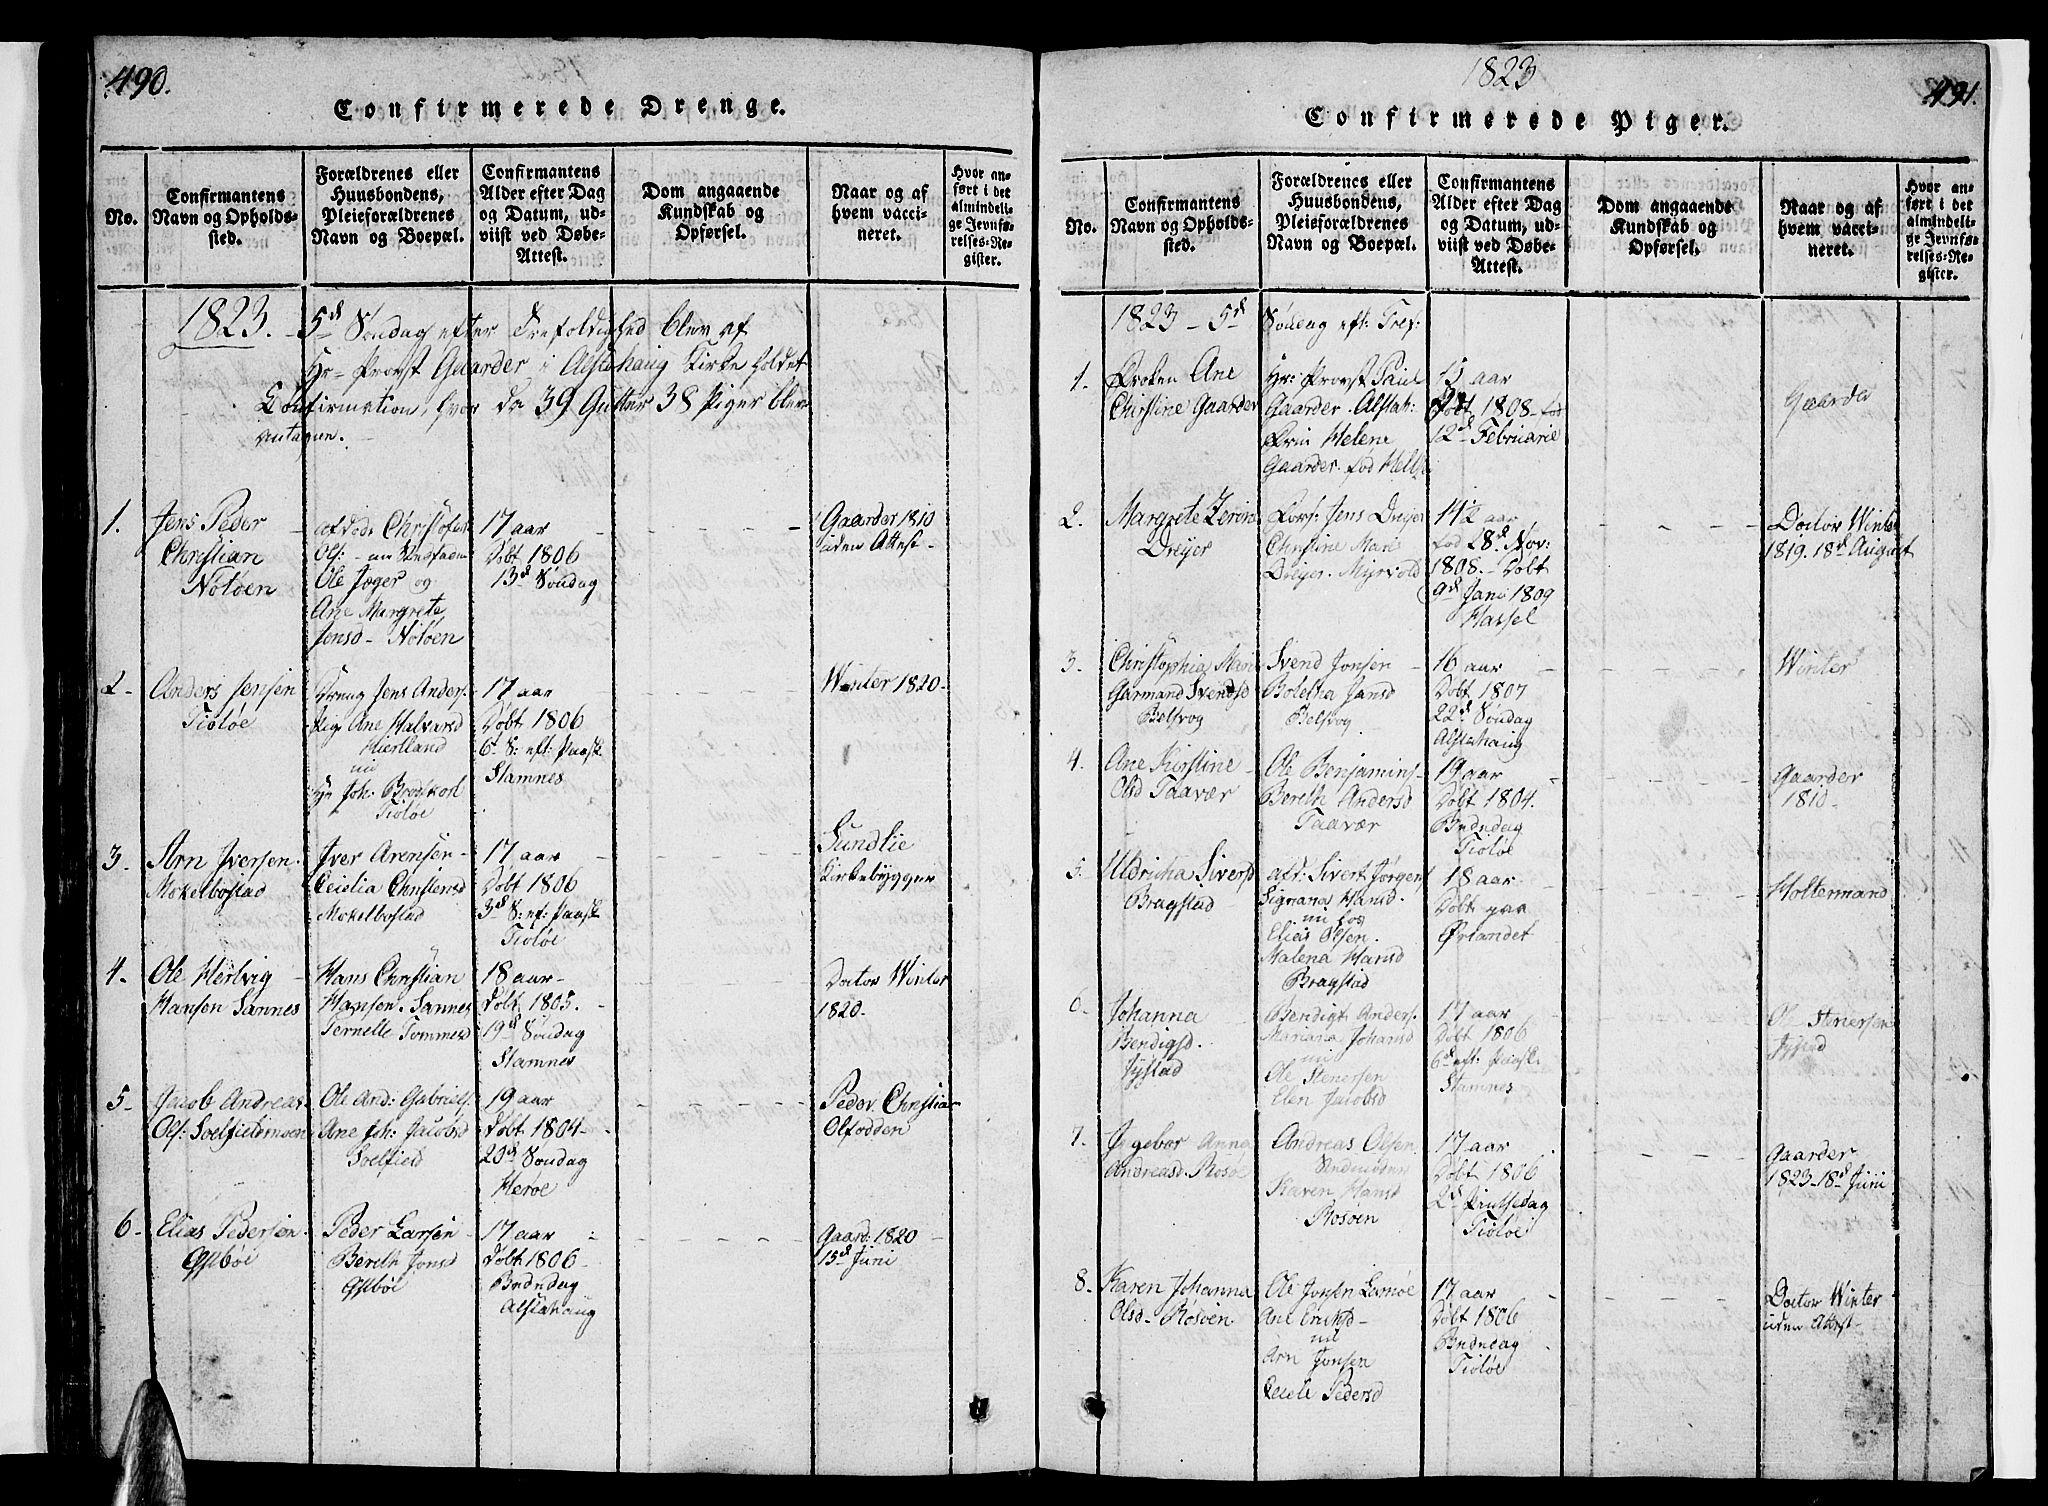 490.
Confirmerede Drenge.
No.
Confirmantens
Navn og Opholds-
sted.
Forældrenes eller
Huusbondens,
Pleieforældrenes
Navn og Boepæl.
Confirmantens
Alder efter Dag
og Datum, ud-
viist ved Døbe-
Attest.
Dom angaaende
Kundskab og
Opførsel.
Naar og af
hvem vacci-
neret.
Hvor an-
ført i det
almindeli-
ge Jevnfø-
relses-Re-
gister.
1823. - 5d Søndag efter Trefoldighed blev af
Hr- Provst Gaarder i Alstahaug Kirke holdet
Confirmation, hvor da 39 Gutter 38 Piger blev
antagne.
1.
Jens Peder
Christian
Notøen
afdøde Christofer
Ols:
Ole Jæger og
Ane Margrete
Jensd- Notøen
17 aar
Døbt 1806
13d Søndag
Gaarder 1810
uden Attest-
2-
Anders Jensen
Tiøtøe
Dreng Jens Anders.
Pig Ane Halvarsd
Hiertland
nu
Joh: Brodtkorb
Tiøtøe
17 aar
Døbt 1806
6 S: eft: Paaske
Stamnes
Winter 1820-
3.
Arn Iversen.
Mekelbostad
Iver Arensen-
Ceielia Christensd
Mekelbostad
17 aar
Døbt 1806
3d S: ef: Paaske
Tiøtøe
Sundlie
Kirkebygger
4.
Ole Hertvig
Hansen Sannes
Hans Christian
Hansen. Sannes
Pernelle Tommesd
18 aar-
Døbt 1805.
19d Søndag
Stamnes
Doctor Winter
1820-
5-
Jacob Andreas
Ols: Sielfieldmoen
Ole And: Gabriels.
Ane Joh: Jacobsd
Sielfield
19 aar
Døbt 1804-
20d Søndag
Herøe
Peder Christian
Olfodden
6-
Elias Pedersen
Peder Larsen
Bereth Jonsd
17 aar
Døbt 1806-
Bndndag
Alstahaug
Gaard: 1820
15d Juni
1823
491.
Confirmerede Piger.
No.
Confirmantens
Navn og Opholds-
sted.
Forældrenes eller
Huusbondens,
Pleieforældrenes
Navn og Boepæl.
Confirmantens
Alder efter Dag
og Datum, ud-
viist ved Døbe-
Attest.
Dom angaaende
Kundskab og
Opførsel.
Naar og af
hvem vacci-
neret.
Hvor an-
ført i det
almindeli-
ge Jevnfø-
relses-Re-
gister.
1823 - 5d Søndag eft: Tref:
1.
Frøken Ane
Christine Gaarder
Hr: Provst Paul
Gaarder. Alstah:
Fru Helene
Gaarder. fød Helts
15 aar
Døbt 1808-fød
12d Februarie
Gaarder
2.
Margrete Zeron
Dreyer
Fors: Jens Dreyer
Christine Mari
Dreyer. Myrvold
14½ aar
fød 28d Nov:
1808.- Døbt
9d Jani 1809
Hassel
Doctor Winter
1819. 18d August
3.
Christophia Mari
Garmand Svendsd
Belsvog
Svend Jonsen
Boletha Jansd
Belsvog
16 aar
Døbt 1807
22d Søndag
Alstahaug
Winter
4.
Ane Kirstine
Olsd Taavær
Ole Benjamins.
Bereth Andersd
Taavær
19 aar
Døbt 1804.
Bndndag
Tiøtøe
Gaarder
1810-
5.
Uldricha Siversd
Bragstad
afd: Sivert Jørgens
Signana Hansd.
nu hos
Elias Olsen.
Malena Hansd
Bragstad
18 aar
Døbt paa
Ørlandet
Holtermand
6.
Johanna
Bendigsd.
Jystad
Bendigt Anders.
Mariana Johansd
nu
Ole Stenersen
Elen Jacobsd
17 aar
Døbt 1806
6d eft: Paaske
Stamnes
Ol Stenersen
Jystad
7.
Ingebor Anna
Andreasd. Rosøe
Andreas Olsen
Karen Hansd
Rosøen
17 aar
Døbt 1806
2d Pintsedag
Tiøtøe
Gaarder
1823-18d Juni
8.
Karen Johanna
Olsd- Rosøen.
Ole Jonsen Lamøe
Ane Eriksd-
nu
Arn Jonsen
Ceiele Pedersd
17 aar
Døbt 1806
Bndndag
Tiøtøe
Doctor Winter
uden Attest-